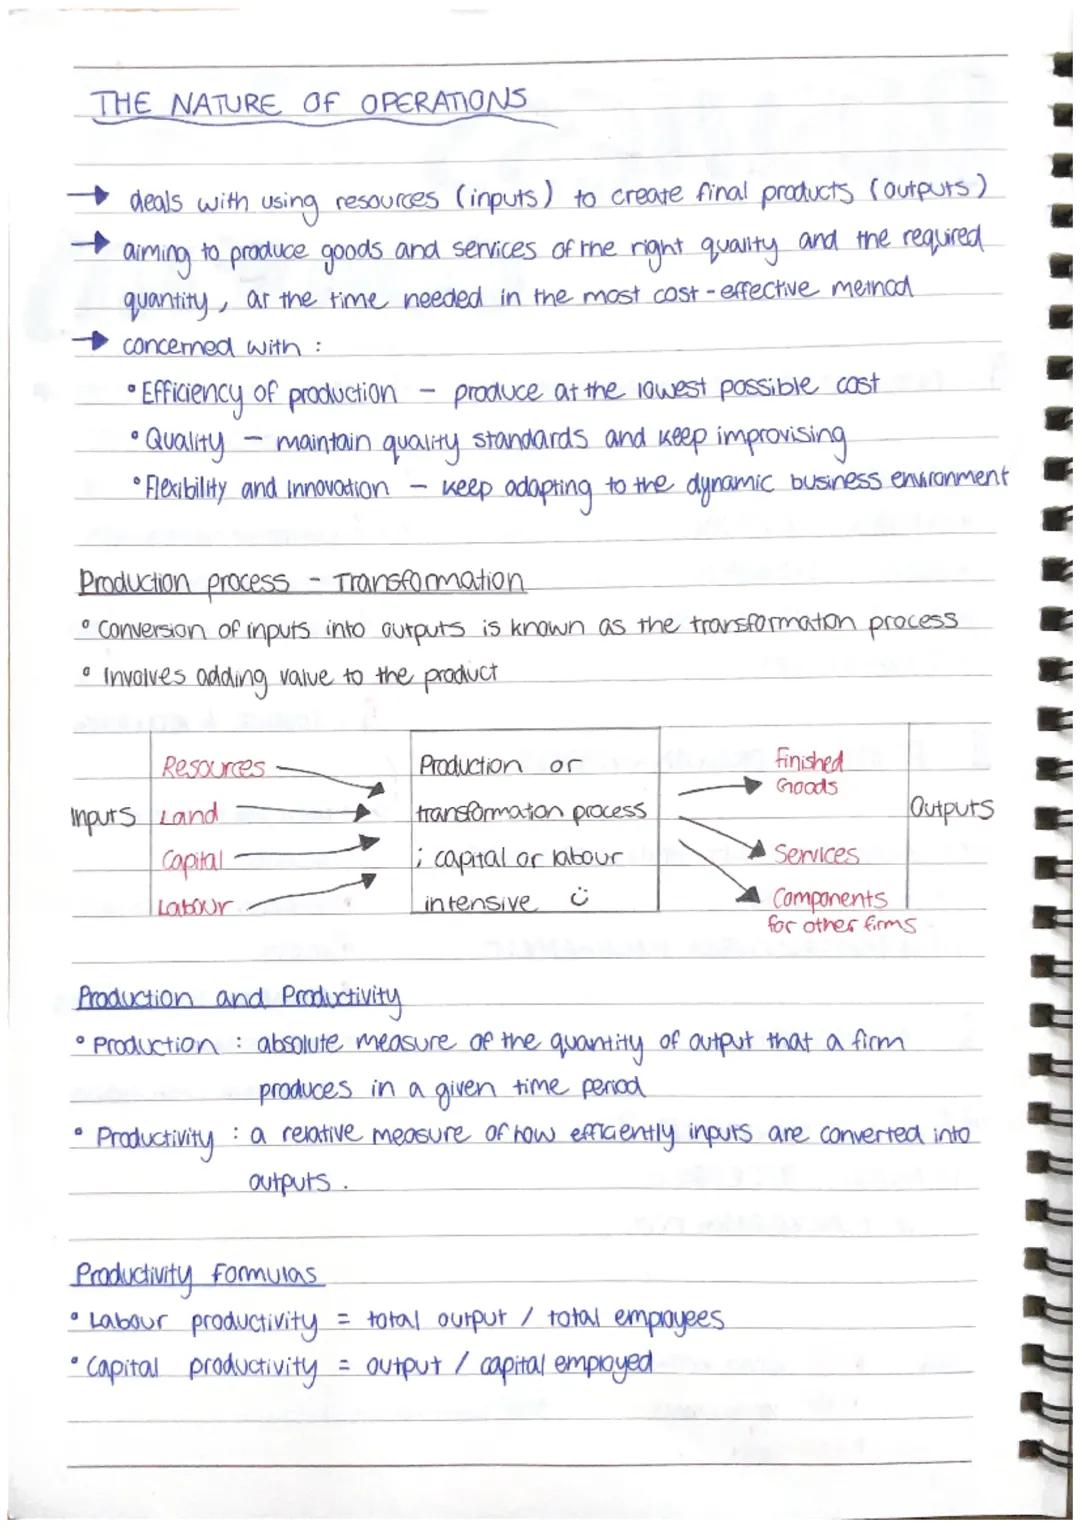 THE NATURE OF OPERATIONS
→ deals with using resources (inputs) to create final products (outputs)
→ aiming to produce goods and services of the right quality and the required
quantity, at the time needed in the most cost-effective method
→ concerned with :
• Efficiency of production - produce at the lowest possible cost
• Quality - maintain quality standards and keep improvising
• Flexibility and innovation - keep adapting to the dynamic business environment
Production process - Transformation
• Conversion of inputs into outputs is known as the transformation process
• Involves adding value to the product
Inputs
Resources
Land
Capital
Labour
Production or
transformation process
; capital or labour
intensive ü
Finished
Goods
Services
Components
for other firms
Outputs
Production and Productivity
• Production : absolute measure of the quantity of output that a firm
produces in a given time period
• Productivity : a relative measure of how efficiently inputs are converted into
outputs.
Productivity Formulas
• Labour productivity = total output / total employees
• Capital productivity = output / capital employed